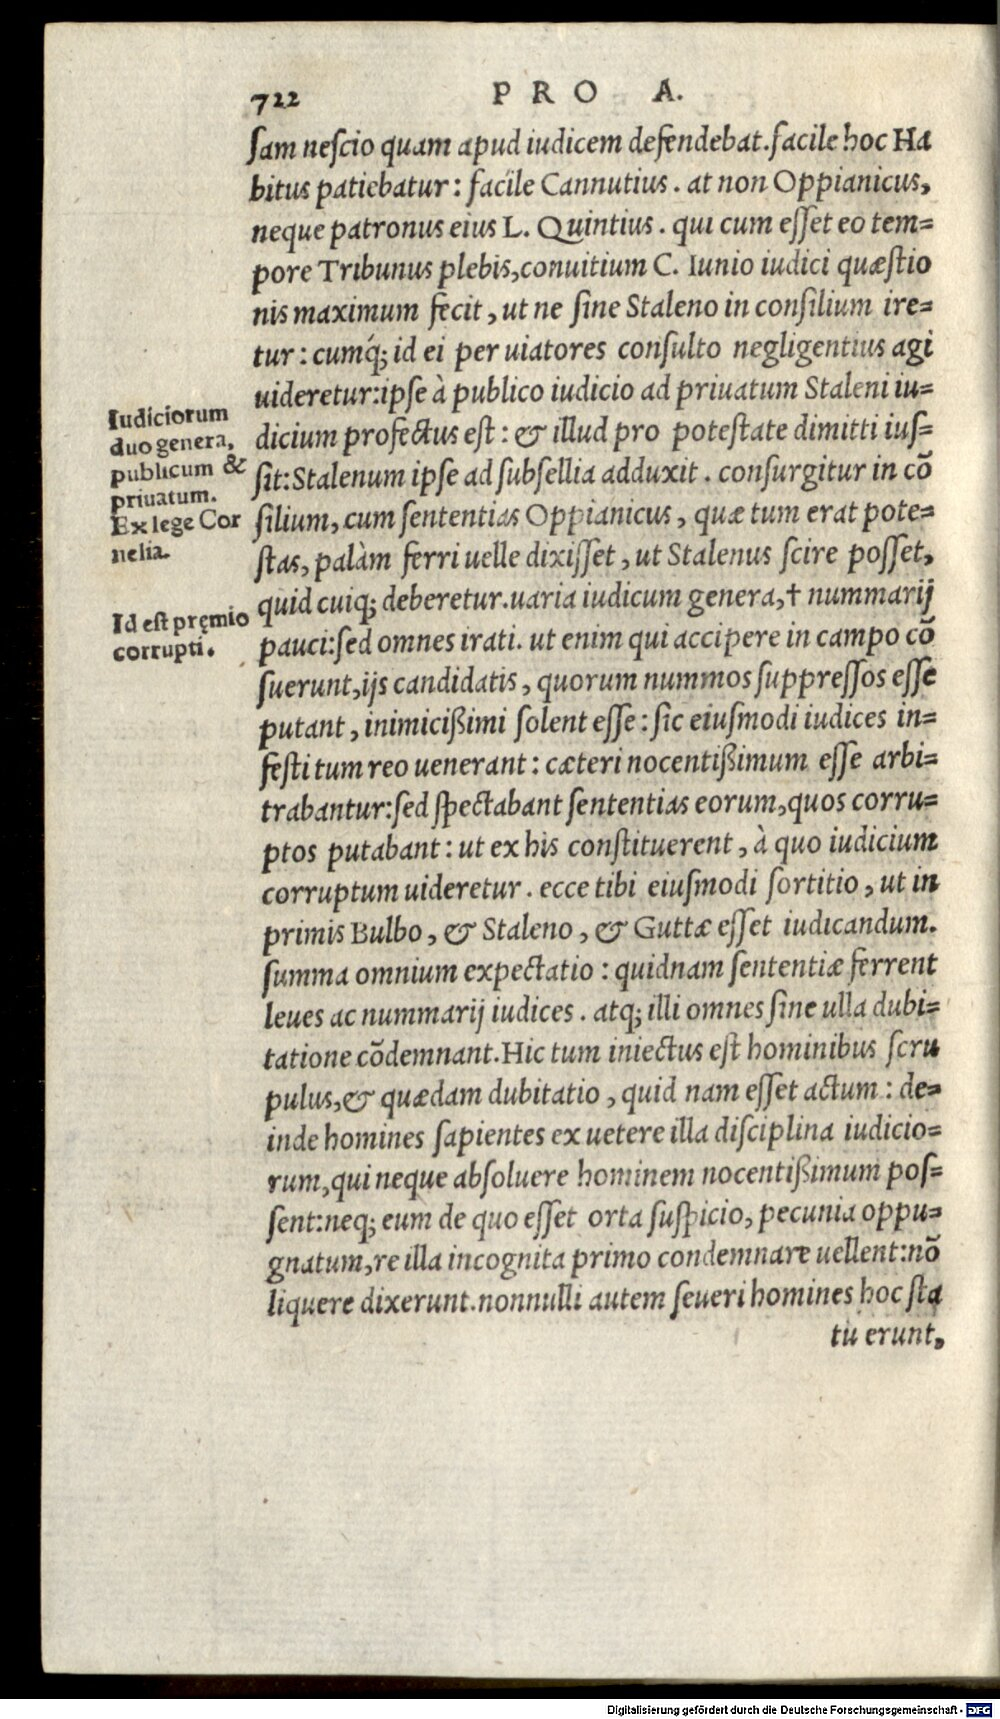 722 PRO A.
sam nescio quam apud iudicem defendebat. facile hoc Ha
bitus patiebatur: facile Cannutius. at non Oppianicus,
neque patronus eius L. Quintius. qui cum esset eo tem=
pore Tribunus plebis, conuitium C. Iunio iudici quæstio
nis maximum fecit, ut ne sine Staleno in consilium ire=
tur: cumq́; id ei per uiatores consulto negligentius agi
uideretur: ipse à publico iudicio ad priuatum Staleni iu=
dicium profectus est: & illud pro potestate dimitti ius=
sit: Stalenum ipse ad subsellia adduxit. consurgitur in cō
silium, cum sententias Oppianicus, quæ tum erat pote=
stas, palàm ferri uelle dixisset, ut Stalenus scire posset,
quid cuiq; deberetur. uaria iudicum genera, † nummarij
pauci: sed omnes irati. ut enim qui accipere in campo cō
suerunt, ijs candidatis, quorum nummos suppressos esse
putant, inimicißimi solent esse: sic eiusmodi iudices in=
festi tum reo uenerant: cæteri nocentißimum esse arbi=
trabantur: sed spectabant sententias eorum, quos corru=
ptos putabant: ut ex his constituerent, à quo iudicium
corruptum uideretur. ecce tibi eiusmodi sortitio, ut in
primis Bulbo, & Staleno, & Guttæ esset iudicandum.
summa omnium expectatio: quidnam sententiæ ferrent
leues ac nummarij iudices. atq; illi omnes sine ulla dubi=
tatione cōdemnant. Hic tum iniectus est hominibus scru
pulus, & quædam dubitatio, quid nam esset actum: de=
inde homines sapientes ex uetere illa disciplina iudicio=
rum, qui neque absoluere hominem nocentißimum pos=
sent: neq; eum de quo esset orta suspicio, pecunia oppu=
gnatum, re illa incognita primo condemnare uellent: nō
liquere dixerunt. nonnulli autem seueri homines hoc sta
tu erunt,
Iudiciorum
duo genera,
publicum &
priuatum.
Ex lege Cor
nelia.
Id est pręmio
corrupti.
Digitalisierung gefördert durch die Deutsche Forschungsgemeinschaft - DFG